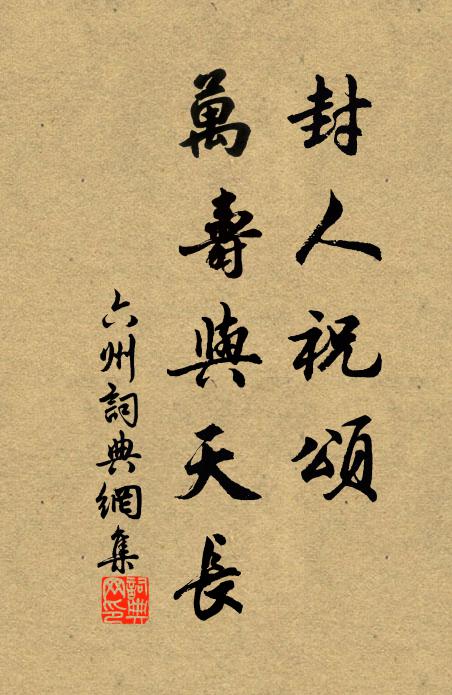 封人祝頌
萬壽與天長
六州詞典網集
詞典网印